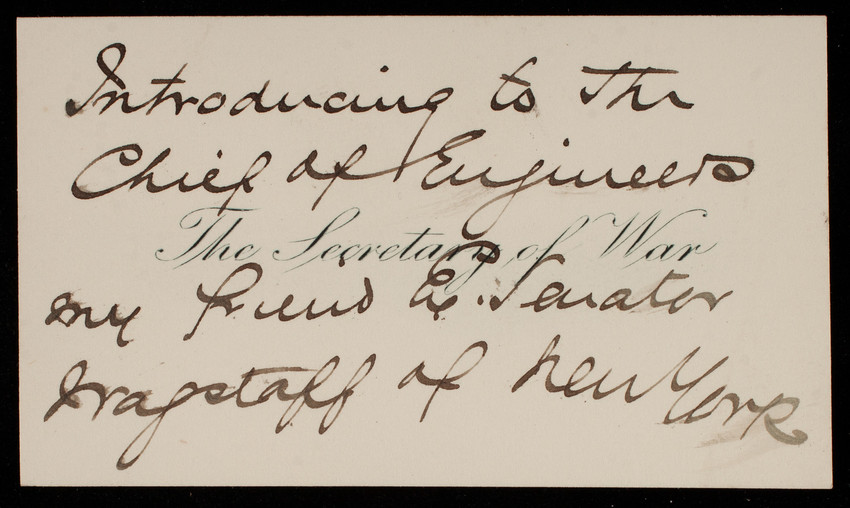 Introducing to The
Chief of Engineers
The Secretary of War
my friend Ex. Senator
Wagstaff of New York